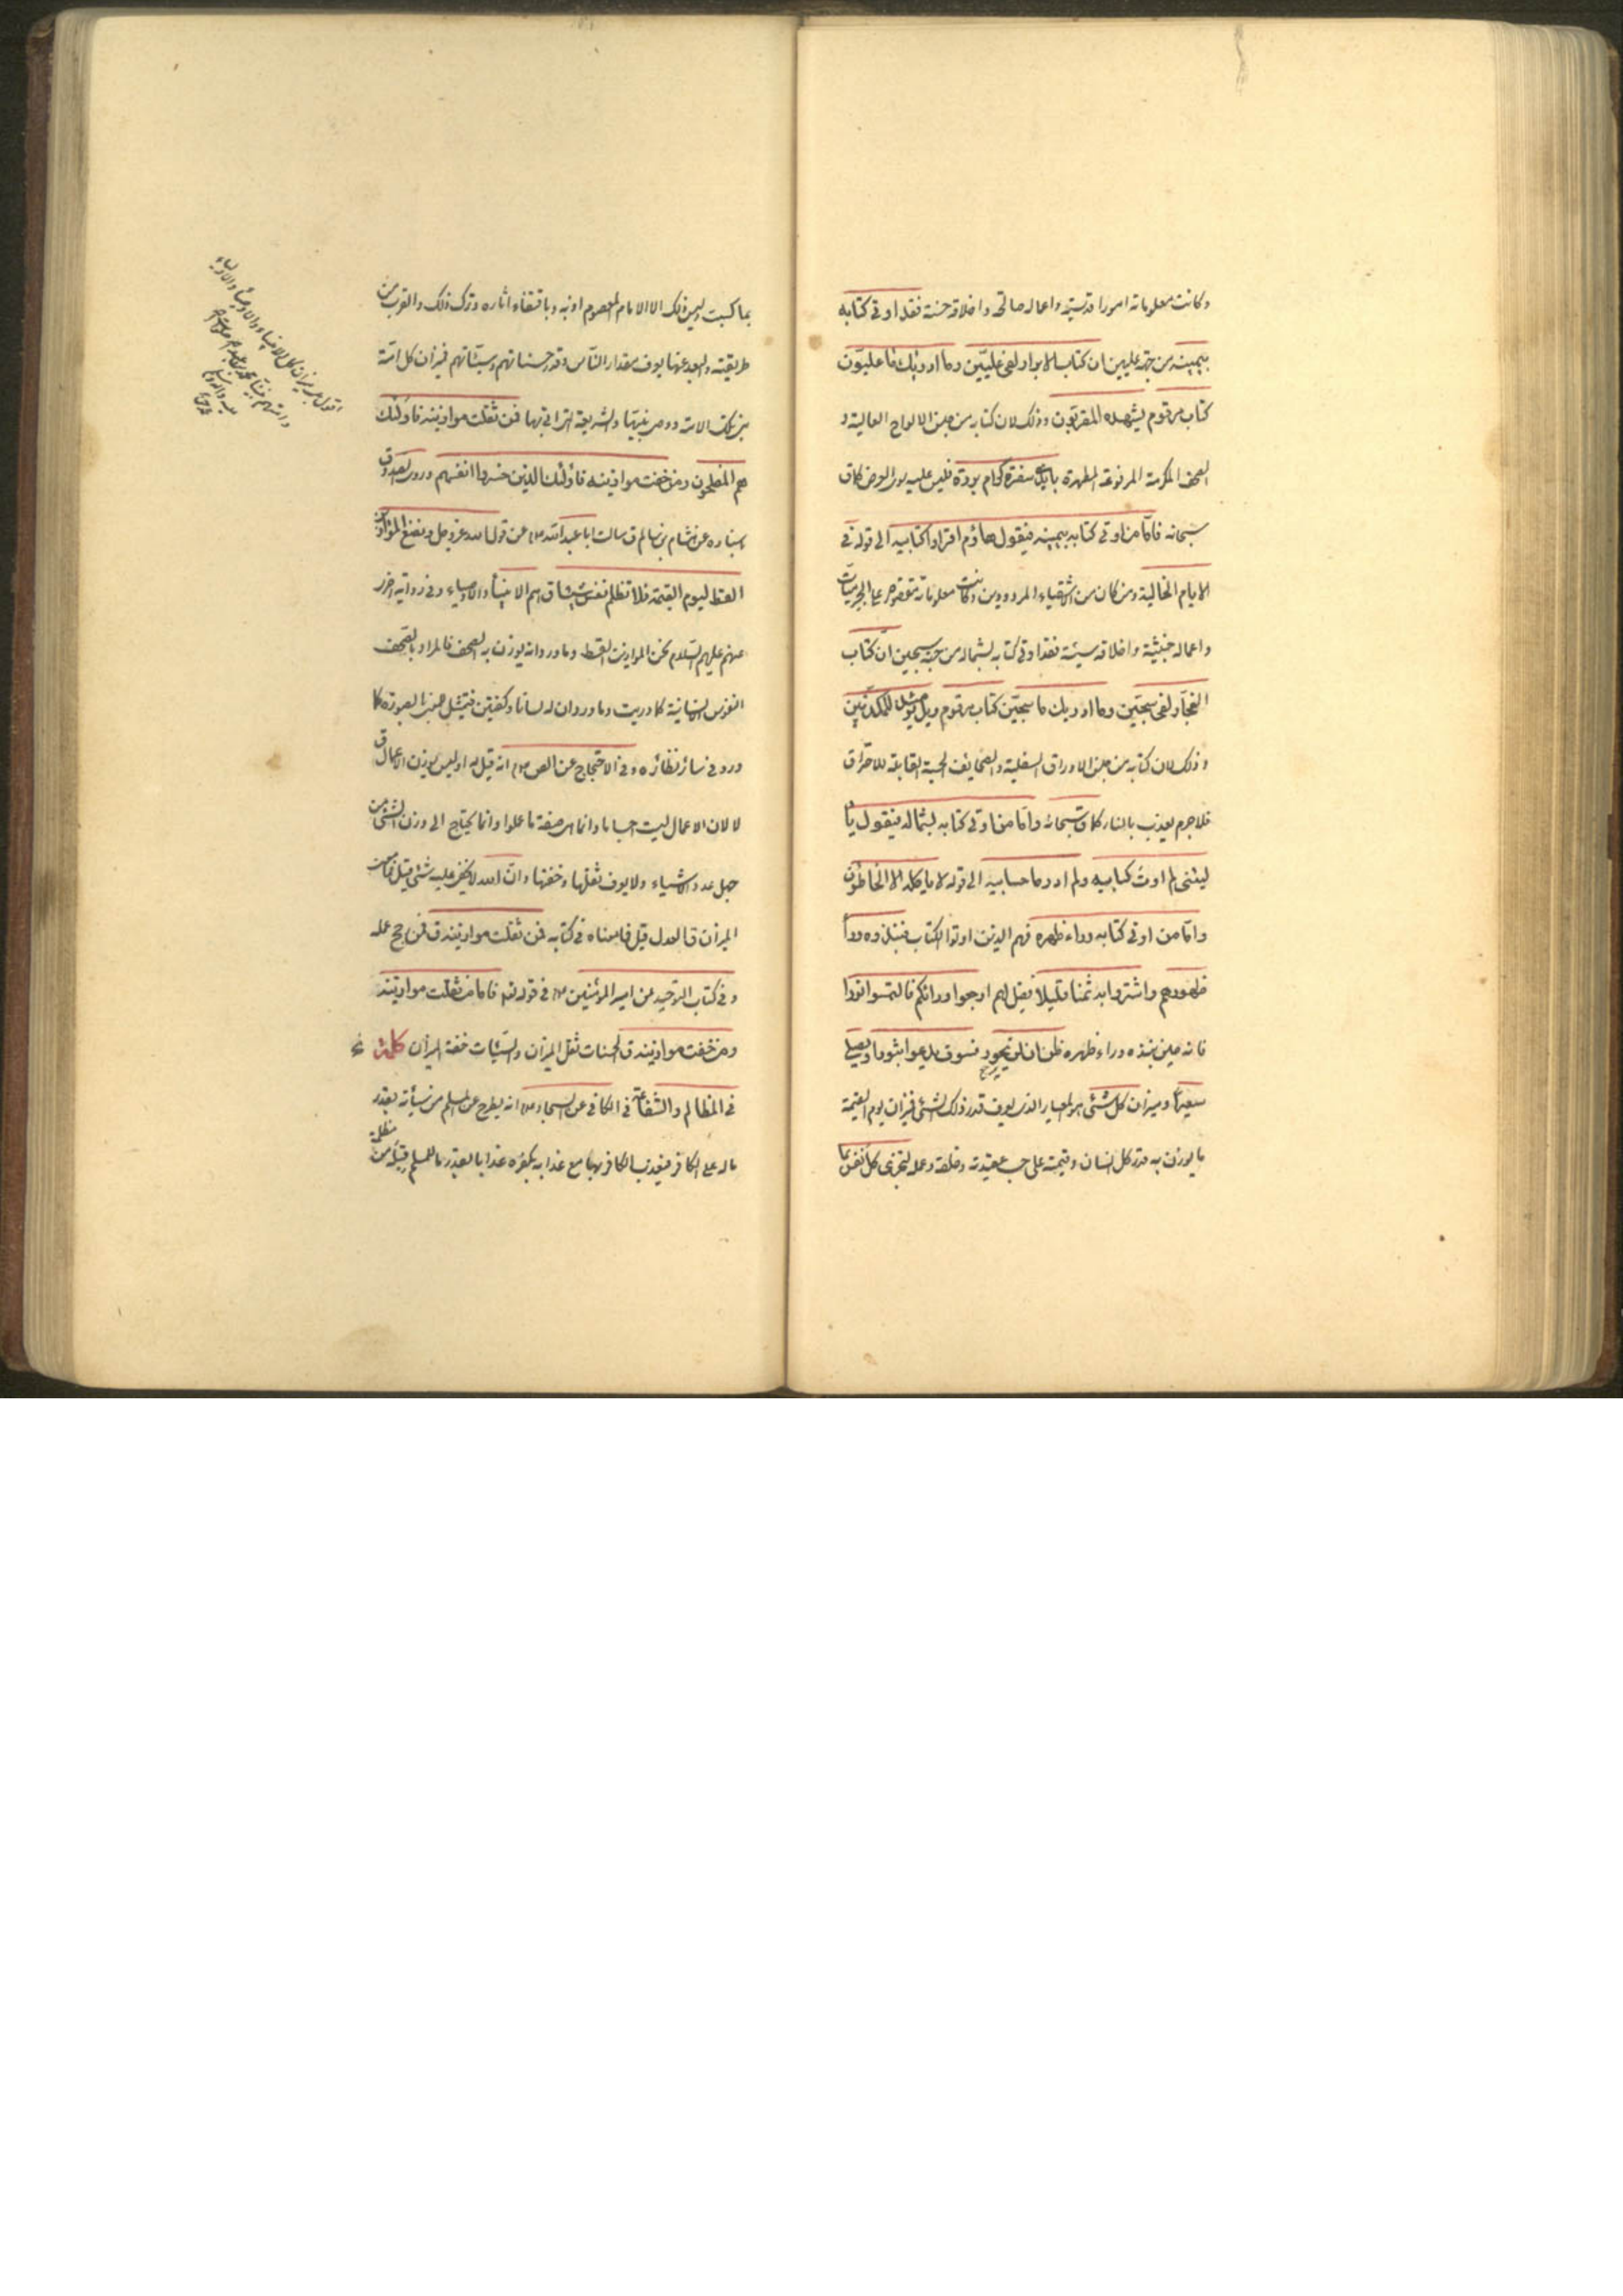 وكانت معلوماته امورا قدسيّة واعماله صالحة واخلاقه حسنة فقد اوتى كتابه
بيمينه من جهة عليين ان كتاب الابرار لفى عليّين وما ادريك ما عليّون
كتاب مرقوم يشهده المقربون وذلك لان كتابه من جنس الالواح العالية و
الصحف المكرمة المرفوعة المطهرة بايدى سفرة كرام بررة فليس عليه سوى العرض كما ق
سبحانه فامّا من اوتى كتابه بيمينه فيقول هاؤم اقرؤا كتابيه الى قوله فى
الايام الخالية ومن كان من الاشقياء المردودين وكانت معلوماته مقصورة على الجرميّات
واعماله خبيثة واخلاقه سيئة فقد اوتى كتابه بشماله من جهة سجين انّ كتاب
الفجّار لفى سجّين وما ادريك ما سجّين كتاب مرقوم ويل يومئذ للمكذّبين
وذلك لان كتابه من جنس الاوراق السفلية والصحايف الحسية القابلة للاحراق
فلا جرم يعذب بالنار كما ق سبحانه وامّا من اوتى كتابه بشماله فيقول يا
ليتنى لم اوت كتابيه ولم ادر ما حسابيه الى قوله لا ياكله الا الخاطؤن
وامّا من اوتى كتابه وراء ظهره فهم الذين اوتوا الكتاب فنبذوه وراء
ظهورهم واشتروا به ثمنا قليلا فيقل لهم ارجعوا وراءكم فالتمسوا نورا
فانه حين نبذه وراء ظهره ظن ان لن يحور فسوف يدعوا ثبورا ويصلى
سعيرا وميزان كل شئ هو المعيار الذى يعرف قدر ذلك الشئ فميزان يوم القيمة
ما يوزن به قدر كل انسان وقيمته على حسب عقيدته وخلقه وعمله لتجزى كل نفس بما
بما كسبت وليس ذلك الا الامام المعصوم اذ به وباقتفاء اثاره وترك ذلك والقرب من
طريقته والبعد عنها يعرف مقدار النّاس وقدر حسناتهم وسيّئاتهم فميزان كل امّة
نبى تلك الامة ووصى نبيها والشريعة التى اتى بها فمن ثقلت موازينه فاولئك
هم المفلحون ومن خفت موازينه فاولئك الذين خسروا انفسهم وروى الصدوق
باسناده عن هشام بن سالم ق سالت ابا عبد الله عن قول الله عز وجل ونضع الموازين
القسط ليوم القيمة فلا تظلم نفس شيئا ق هم الانبياء والاوصياء وفى رواية اخرى
عنهم عليهم السّلام نحن الموازين القسط وما ورد انه يوزن به الصحف فالمراد بالصّحف
النفوس الانسانية كما دريت وما ورد ان له لسانا وكفتين فتمثيل حسن الصورة كما
ورد فى سائر نظائره وفى الاحتجاج عن الص انه قيل له اوليس يوزن الاعمال ق
لا لان الاعمال ليست اجساما وانما هى صفة ما عملوا وانما يحتاج الى وزن الشئ من
جهل عدد الاشياء ولا يعرف ثقلها وخفتها وانّ الله لا يخفى عليه شئ قيل فما معنى
الميزان ق العدل قيل فما معناه فى كتابه فمن ثقلت موازينه ق فمن رجح عمله
وفى كتاب التوحيد عن امير المؤمنين فى قوله تع فاما من ثقلت موازينه
ومن خفت موازينه ق الحسنات ثقل الميزان والسيّئات خفة الميزان كلمة
فى المظالم والشفاعة فى الكافى عن السجاد انه يطرح عن المسلم من سيئاته بقدر
ما له على الكافر فيعذب الكافر بها مع عذابه بكفره عذابا بقدر ما للمسلم قبله من
مظلمة